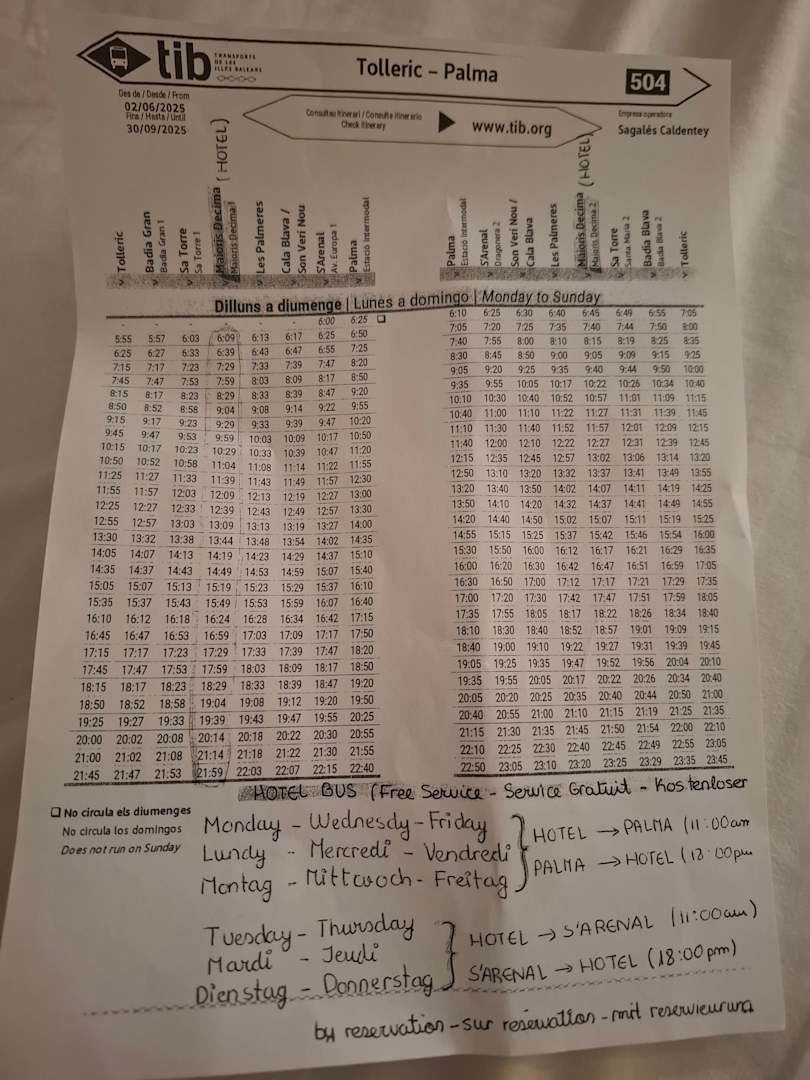 tib
TRANSPORTS
DE LES
ILLES BALEARS
Tolleric – Palma
504
Des de / Desde / From
02/06/2025
Fins / Hasta / Until
30/09/2025
Consultau itinerari / Consulte itinerario
Check itinerary
www.tib.org
Empresa operadora
Sagalés Caldentey
Tolleric
Badia Gran
Badia Gran 1
Sa Torre
Sa Torre 1
Maioris Decima (HOTEL)
Maioris Decima 1
Les Palmeres
Cala Blava /
Son Verí Nou
S'Arenal
Av. Europa 1
Palma
Estació Intermodal
Palma
Estació Intermodal
S'Arenal
Dragonera 2
Son Verí Nou /
Cala Blava
Les Palmeres
Maioris Decima (HOTEL)
Maioris Decima 2
Sa Torre
Santa Maria 2
Badia Blava
Badia Blava 2
Tolleric
Dilluns a diumenge | Lunes a domingo | Monday to Sunday
- - - - - - 6:00 6:25 ❏
5:55 5:57 6:03 6:09 6:13 6:17 6:25 6:50
6:25 6:27 6:33 6:39 6:43 6:47 6:55 7:25
7:15 7:17 7:23 7:29 7:33 7:39 7:47 8:20
7:45 7:47 7:53 7:59 8:03 8:09 8:17 8:50
8:15 8:17 8:23 8:29 8:33 8:39 8:47 9:20
8:50 8:52 8:58 9:04 9:08 9:14 9:22 9:55
9:15 9:17 9:23 9:29 9:33 9:39 9:47 10:20
9:45 9:47 9:53 9:59 10:03 10:09 10:17 10:50
10:15 10:17 10:23 10:29 10:33 10:39 10:47 11:20
10:50 10:52 10:58 11:04 11:08 11:14 11:22 11:55
11:25 11:27 11:33 11:39 11:43 11:49 11:57 12:30
11:55 11:57 12:03 12:09 12:13 12:19 12:27 13:00
12:25 12:27 12:33 12:39 12:43 12:49 12:57 13:30
12:55 12:57 13:03 13:09 13:13 13:19 13:27 14:00
13:30 13:32 13:38 13:44 13:48 13:54 14:02 14:35
14:05 14:07 14:13 14:19 14:23 14:29 14:37 15:10
14:35 14:37 14:43 14:49 14:53 14:59 15:07 15:40
15:05 15:07 15:13 15:19 15:23 15:29 15:37 16:10
15:35 15:37 15:43 15:49 15:53 15:59 16:07 16:40
16:10 16:12 16:18 16:24 16:28 16:34 16:42 17:15
16:45 16:47 16:53 16:59 17:03 17:09 17:17 17:50
17:15 17:17 17:23 17:29 17:33 17:39 17:47 18:20
17:45 17:47 17:53 17:59 18:03 18:09 18:17 18:50
18:15 18:17 18:23 18:29 18:33 18:39 18:47 19:20
18:50 18:52 18:58 19:04 19:08 19:12 19:20 19:50
19:25 19:27 19:33 19:39 19:43 19:47 19:55 20:25
20:00 20:02 20:08 20:14 20:18 20:22 20:30 20:55
21:00 21:02 21:08 21:14 21:18 21:22 21:30 21:55
21:45 21:47 21:53 21:59 22:03 22:07 22:15 22:40
6:10 6:25 6:30 6:40 6:45 6:49 6:55 7:05
7:05 7:20 7:25 7:35 7:40 7:44 7:50 8:00
7:40 7:55 8:00 8:10 8:15 8:19 8:25 8:35
8:30 8:45 8:50 9:00 9:05 9:09 9:15 9:25
9:05 9:20 9:25 9:35 9:40 9:44 9:50 10:00
9:35 9:55 10:05 10:17 10:22 10:26 10:34 10:40
10:10 10:30 10:40 10:52 10:57 11:01 11:09 11:15
10:40 11:00 11:10 11:22 11:27 11:31 11:39 11:45
11:10 11:30 11:40 11:52 11:57 12:01 12:09 12:15
11:40 12:00 12:10 12:22 12:27 12:31 12:39 12:45
12:15 12:35 12:45 12:57 13:02 13:06 13:14 13:20
12:50 13:10 13:20 13:32 13:37 13:41 13:49 13:55
13:20 13:40 13:50 14:02 14:07 14:11 14:19 14:25
13:50 14:10 14:20 14:32 14:37 14:41 14:49 14:55
14:20 14:40 14:50 15:02 15:07 15:11 15:19 15:25
14:55 15:15 15:25 15:37 15:42 15:46 15:54 16:00
15:30 15:50 16:00 16:12 16:17 16:21 16:29 16:35
16:00 16:20 16:30 16:42 16:47 16:51 16:59 17:05
16:30 16:50 17:00 17:12 17:17 17:21 17:29 17:35
17:00 17:20 17:30 17:42 17:47 17:51 17:59 18:05
17:35 17:55 18:05 18:17 18:22 18:26 18:34 18:40
18:10 18:30 18:40 18:52 18:57 19:01 19:09 19:15
18:40 19:00 19:10 19:22 19:27 19:31 19:39 19:45
19:05 19:25 19:35 19:47 19:52 19:56 20:04 20:10
19:35 19:55 20:05 20:17 20:22 20:26 20:34 20:40
20:05 20:20 20:25 20:35 20:40 20:44 20:50 21:00
20:40 20:55 21:00 21:10 21:15 21:19 21:25 21:35
21:15 21:30 21:35 21:45 21:50 21:54 22:00 22:10
22:10 22:25 22:30 22:40 22:45 22:49 22:55 23:05
22:50 23:05 23:10 23:20 23:25 23:29 23:35 23:45
HOTEL BUS (Free Service - Service Gratuit - Kostenloser
❏ No circula els diumenges
No circula los domingos
Does not run on Sunday
Monday - Wednesdy - Friday
Lundy - Mercredi - Vendredi
Montag - Mittwoch - Freitag
HOTEL → PALMA (11:00am
PALMA → HOTEL (18:00pm
Tuesday - Thursday
Mardi - Jeudi
Dienstag - Donnerstag
HOTEL → S'ARENAL (11:00am)
S'ARENAL → HOTEL (18:00pm)
by reservation - sur reservation - mit reservieurung